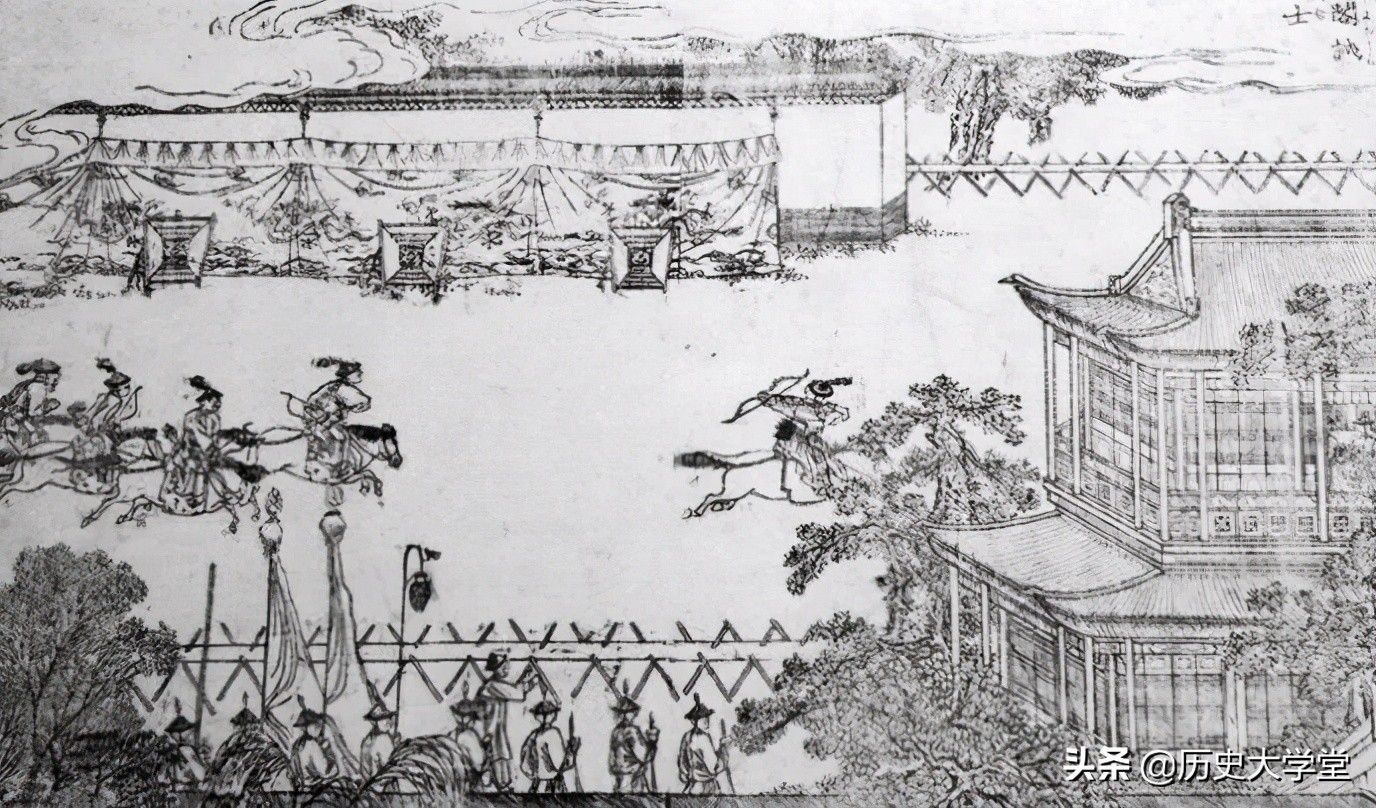 士
头条 @历史大学堂